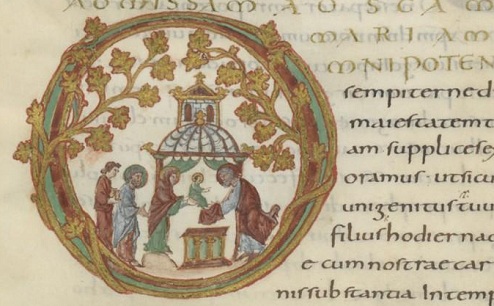 MARIAM
MNIPOTEN
sempiterne d
maiestatem t
am supplices e
oramus· ut sicu
unigenitus tuu
filius hodierna
e cum nostrae car
nis substantia In temp